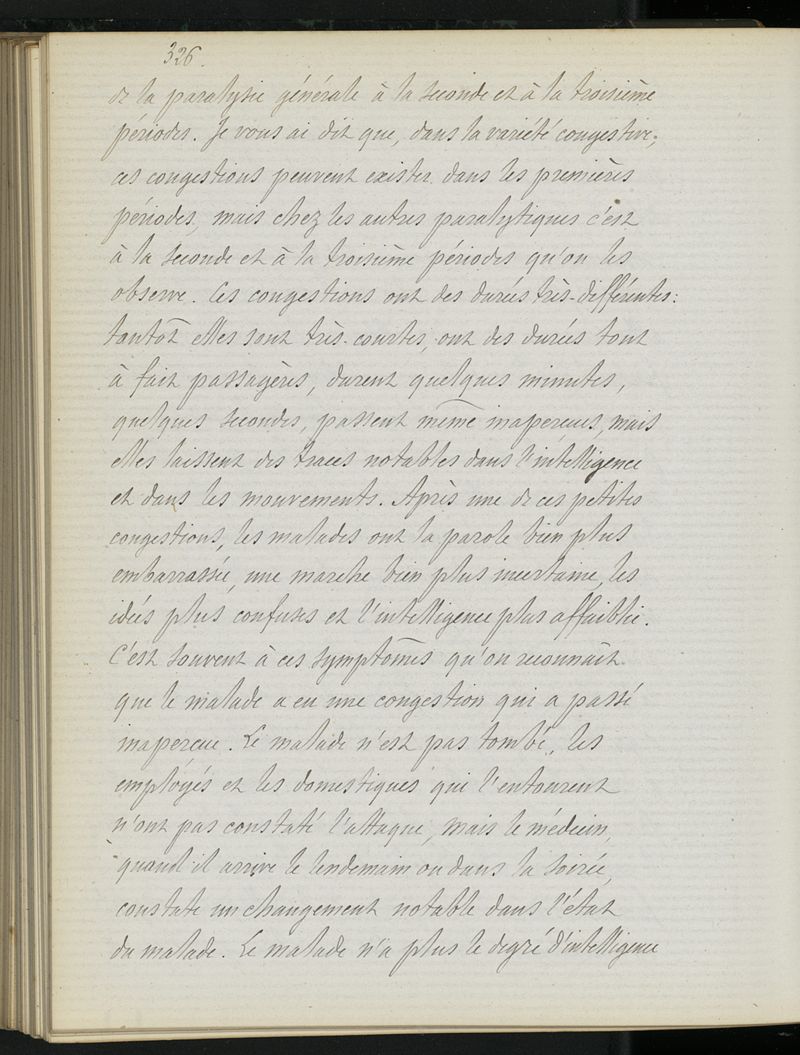 326.
de la paralysie générale à la seconde et à la troisième
périodes. Je vous ai dit que, dans la variété congestive,
ces congestions peuvent exister dans les premières
périodes, mais chez les autres paralytiques c'est
à la seconde et à la troisième périodes qu'on les
observe. Ces congestions ont des durées très-différentes:
tantôt elles sont très-courtes, ont des durées tout
à fait passagères, durent quelques minutes,
quelques secondes, passent même inaperçues, mais
elles laissent des traces notables dans l'intelligence
et dans les mouvements. Après une de ces petites
congestions, les malades ont la parole bien plus
embarrassée, une marche bien plus incertaine, les
idées plus confuses et l'intelligence plus affaiblie.
C'est souvent à ces symptômes qu'on reconnaît
que le malade a eu une congestion qui a passé
inaperçue. Le malade n'est pas tombé, les
employés et les domestiques qui l'entourent
n'ont pas constaté l'attaque, mais le médecin,
quand il arrive le lendemain ou dans la soirée,
constate un changement notable dans l'état
du malade. Le malade n'a plus le degré d'intelligence